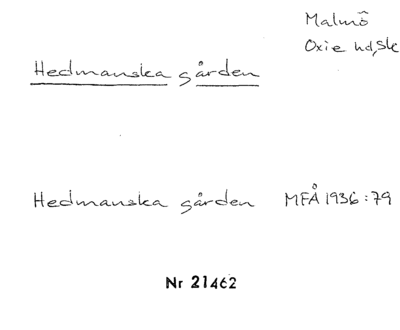 Malmö
Oxie hd, Sk
Hedmanska gården
Hedmanska gården MFÅ 1936:79
Nr 21462